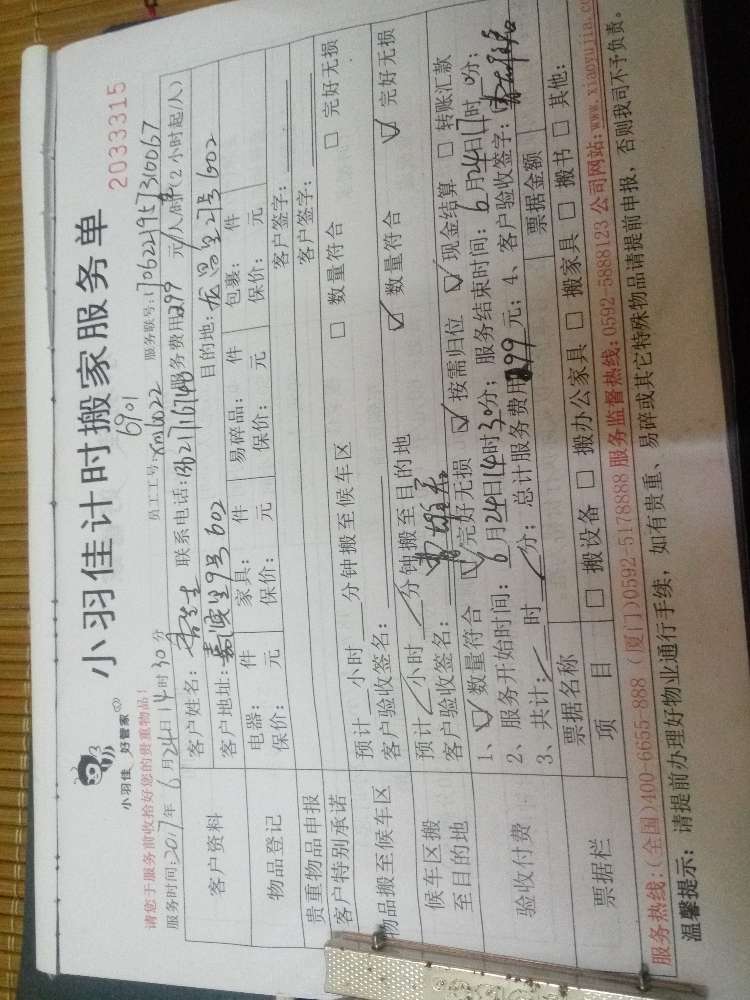 小羽佳 好管家
小羽佳计时搬家服务单
2033315
6901
请您于服务前收拾好您的贵重物品！
服务时间：2017年6月24日14时30分 员工工号：xm6022 服务联号：1706221957310067
客户资料
客户姓名： 联系电话： 服务费用299元/人/时（2小时起/人）
客户地址： 9号602 目的地： 21号602
物品登记
电器： 件 家具： 件 易碎品： 件 包裹： 件
保价： 元 保价： 元 保价： 元 保价： 元
贵重物品申报 客户签字：
客户特别承诺 客户签字：
物品搬至候车区
预计 小时 分钟搬至候车区 □ 数量符合 □ 完好无损
客户验收签名：
候车区搬至目的地
预计 小时 分钟搬至目的地 ☑ 数量符合 ☑ 完好无损
客户验收签名：
验收付费
1、☑数量符合 ☑完好无损 ☑按需归位 ☑现金结算 □转账汇款
2、服务开始时间：6月24日14时30分；服务结束时间：6月24日17时0分；
3、共计： 时 分；总计服务费用299元；4、客户验收签字：
票据栏
票据名称 票据金额
项 目 □ 搬设备 □ 搬办公家具 □ 搬家具 □ 搬书 □ 其他：
服务热线：（全国）400-6655-888（厦门）0592-5178888 服务监督热线：0592-5888123 公司网站：www.xiaoyujia.co
温馨提示：请提前办理好物业通行手续，如有贵重、易碎或其它特殊物品请提前申报，否则我司不予负责。